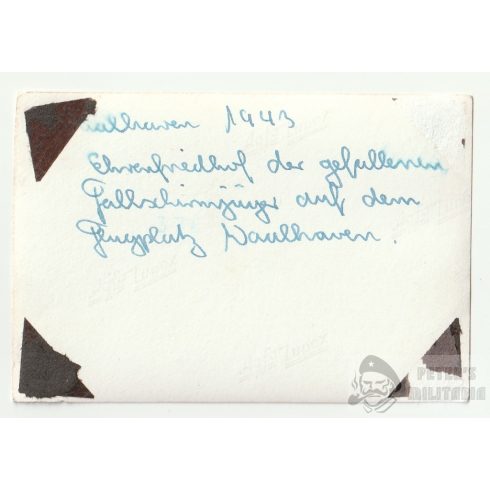 aalhaven 1943
Ehrenfriedhof der gefallenen
Fallschirmjäger auf dem
Flugplatz Waalhaven.
PETER'S
MILITARIA